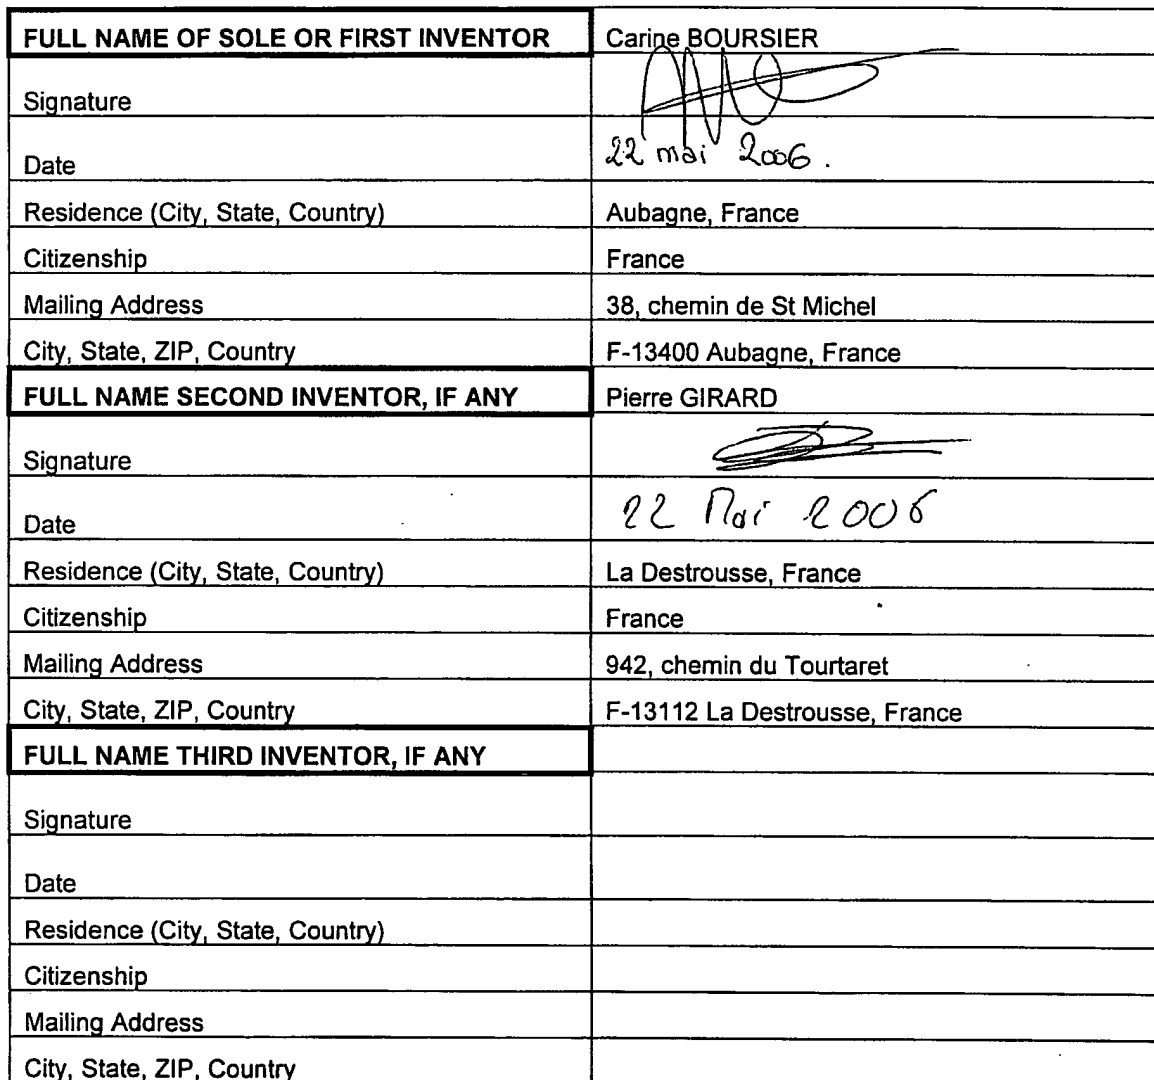 FULL NAME OF SOLE OR FIRST INVENTOR Carine BOURSIER
Signature
Date 22 mai 2006.
Residence (City, State, Country) Aubagne, France
Citizenship France
Mailing Address 38, chemin de St Michel
City, State, ZIP, Country F-13400 Aubagne, France
FULL NAME SECOND INVENTOR, IF ANY Pierre GIRARD
Signature
Date 22 Mai 2006
Residence (City, State, Country) La Destrousse, France
Citizenship France
Mailing Address 942, chemin du Tourtaret
City, State, ZIP, Country F-13112 La Destrousse, France
FULL NAME THIRD INVENTOR, IF ANY
Signature
Date
Residence (City, State, Country)
Citizenship
Mailing Address
City, State, ZIP, Country